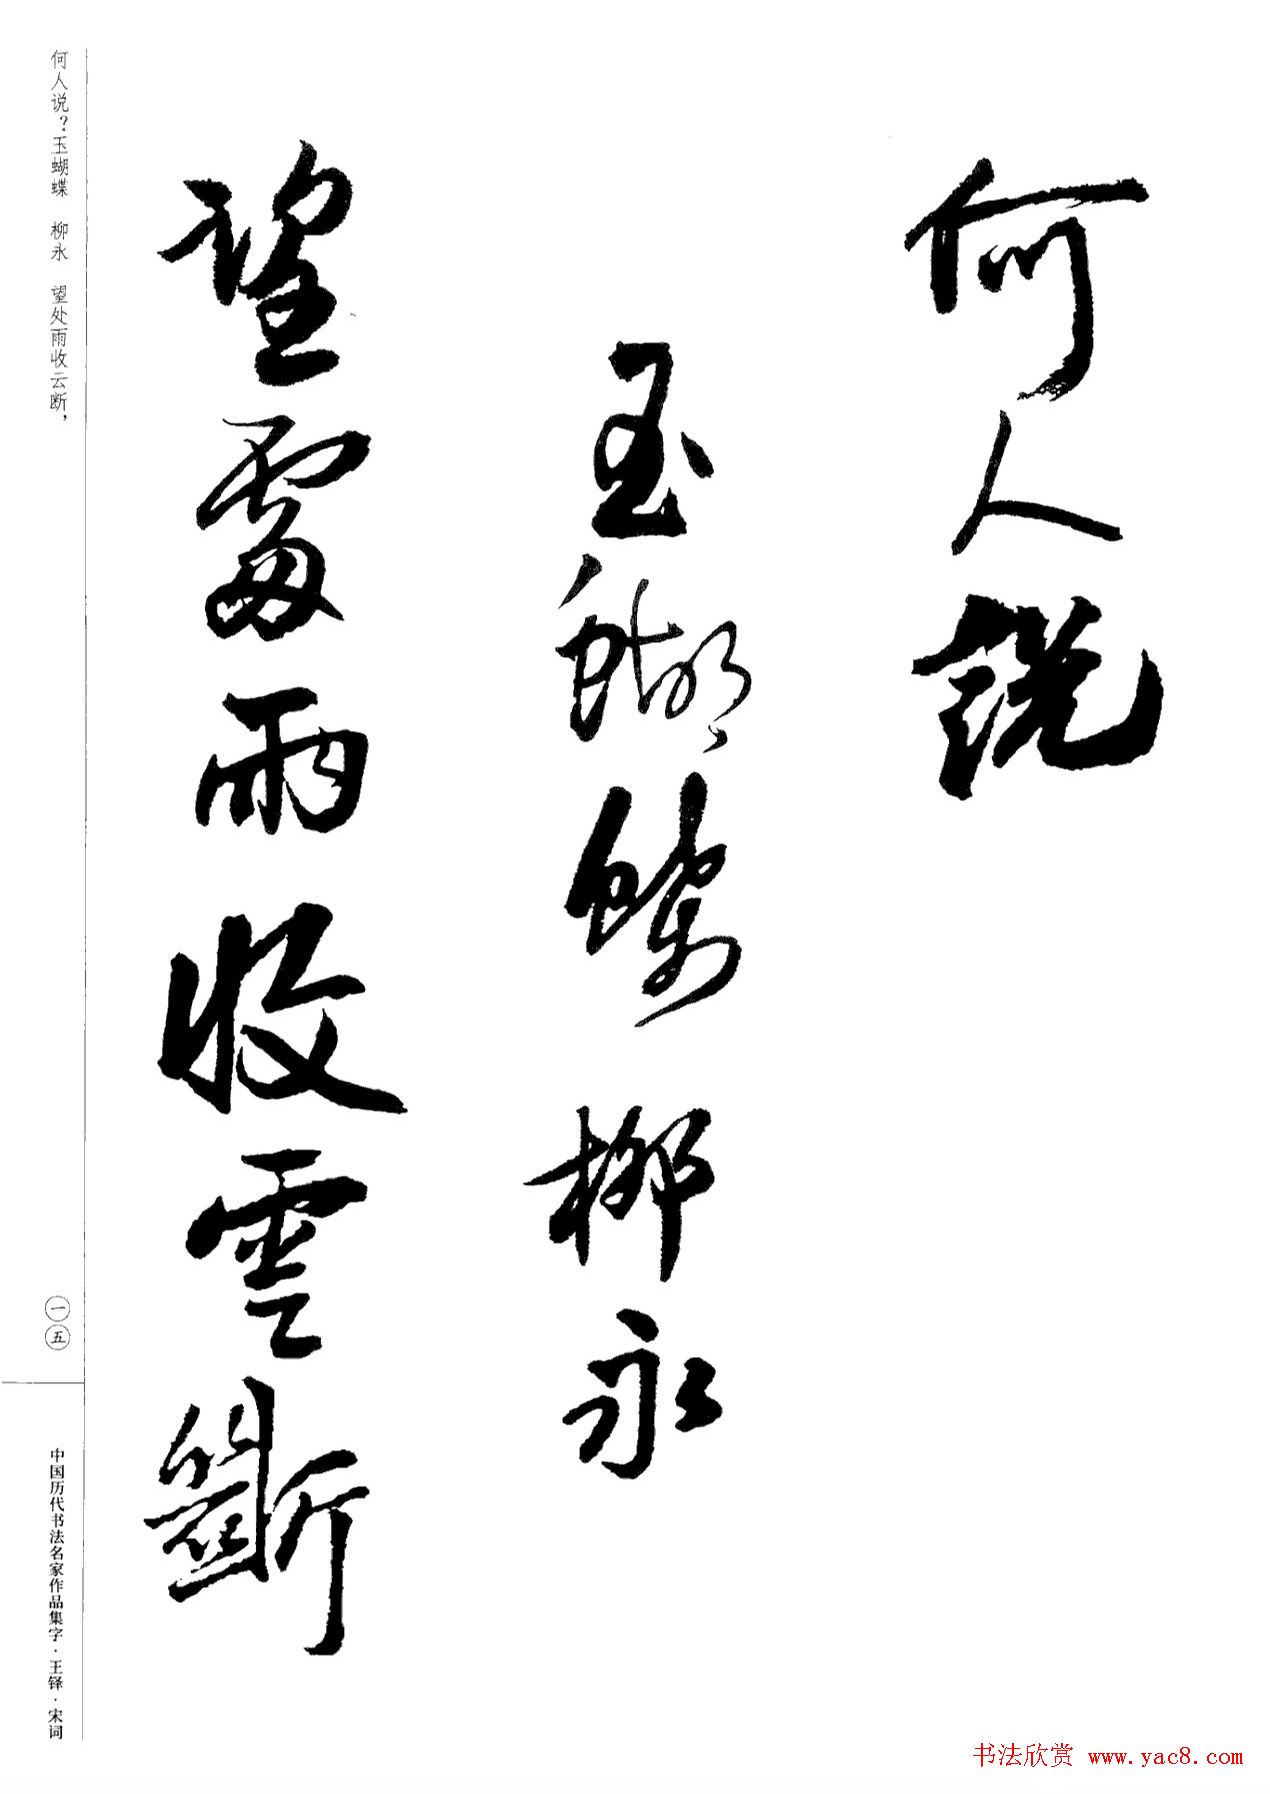 何人説
玉蝴蝶 柳永
望處雨收雲斷
何人说？玉蝴蝶 柳永 望处雨收云断，
一五
中国历代书法名家作品集字·王铎·宋词
书法欣赏 www.yac8.com